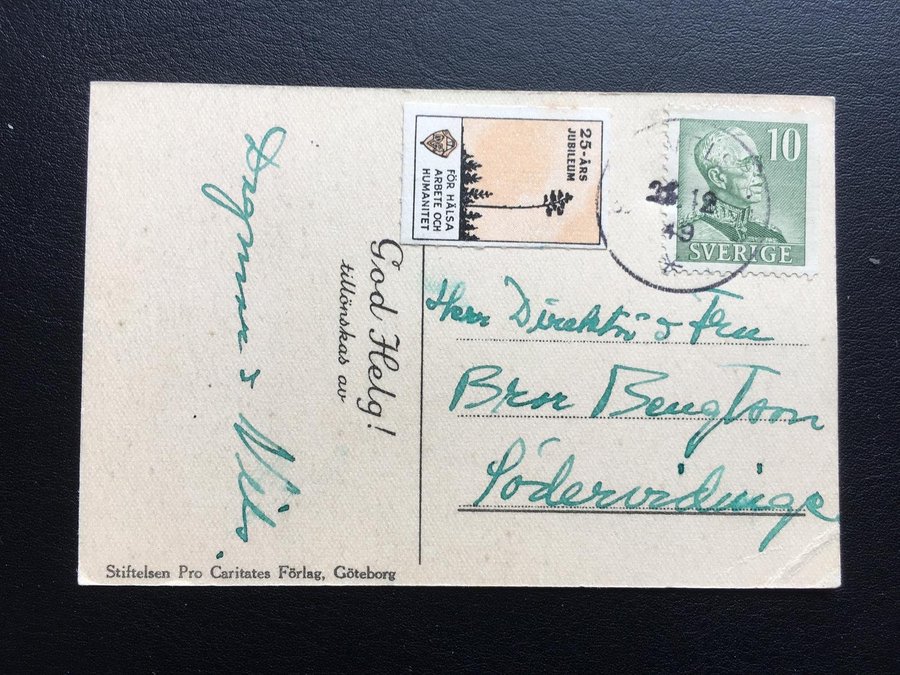 25-ÅRS
JUBILEUM
FÖR HÄLSA
ARBETE OCH
HUMANITET
10
SVERIGE
12
49
God Helg!
tillönskas av
Dagmar & Nils.
Herr Direktör & Fru
Bror Bengtson
Södervidinge
Stiftelsen Pro Caritates Förlag, Göteborg